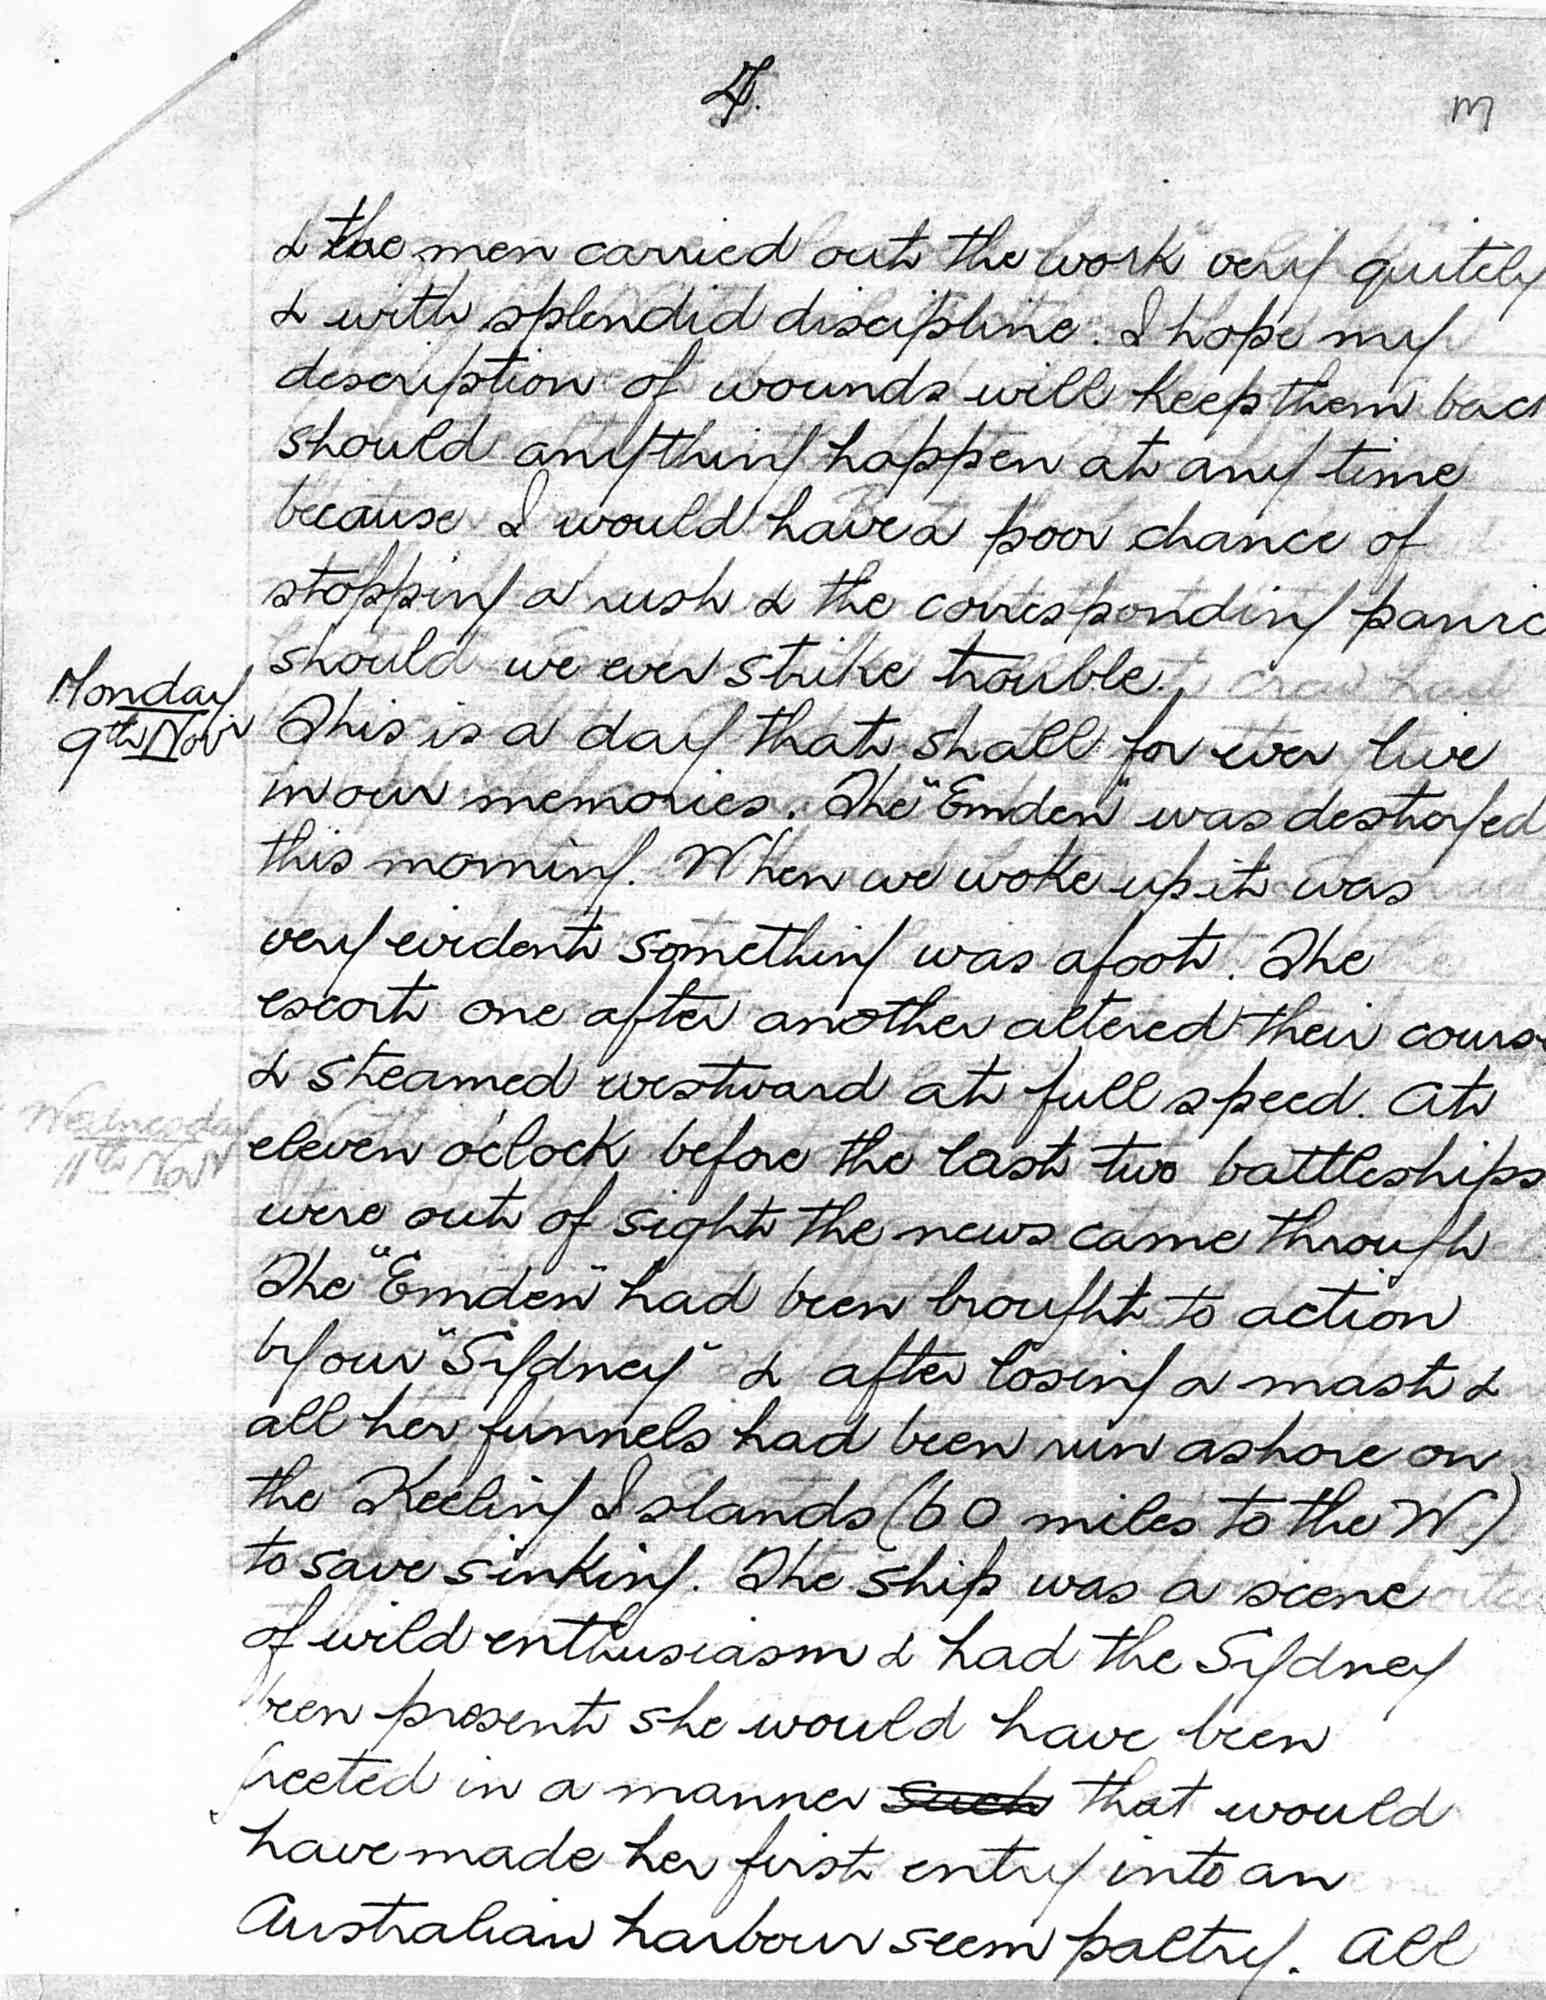 4.
m
& the men carried out the work very quitely
& with splendid discipline. I hope my
description of wounds will keep them back
should anything happen at any time
because I would have a poor chance of
stopping a rush & the corresponding panic
should we ever strike trouble.
Monday
9th Nov
This is a day that shall for ever live
in our memories. The "Emden" was destroyed
this morning. When we woke up it was
very evident something was afoot. The
escort one after another altered their course
& steamed westward at full speed. At
Wednesday
11th Nov
eleven o'clock before the last two battleships
were out of sight the news came through
The "Emden" had been brought to action
by our "Sydney" & after losing a mast &
all her funnels had been run ashore on
the Keeling Islands (60 miles to the W)
to save sinking. The ship was a scene
of wild enthusiasm & had the Sydney
been present she would have been
greeted in a manner such that would
have made her first entry into an
Australian harbour seem paltry. All